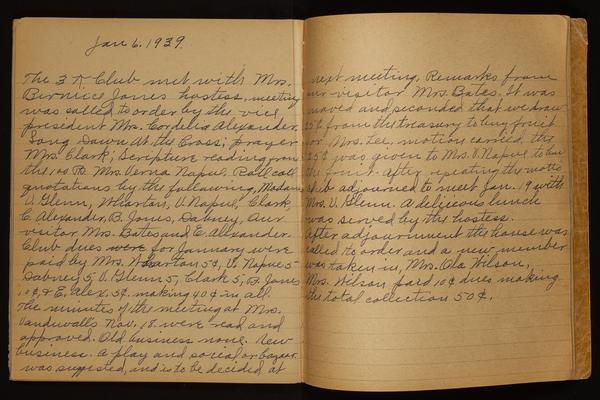 Jan 6. 1939.
The 3 A Club met with Mrs.
Bernice Jones hostess, meeting
was called to order by the vice
president Mrs. Cordelia Alexander,
Song Down At the Cross; prayer
Mrs. Clark; Scripture reading from
the 100 Ps. Mrs. Verna Napue. Roll call
quotations by the following, Madams
V. Glenn, Wharton, V. Napue, Clark,
C. Alexander, B. Jones, Dabney, Our
visitor Mrs. Bates and E. Alexander.
Club dues were for January were
paid by Mrs. Wharton 5¢, V. Napue 5
Dabney 5, V. Glenn 5, Clark 5, B. Jones
10¢, & E. Alex. 5¢. making 40¢ in all.
The minutes of the meeting at Mrs.
Vanduvall's Nov. 18. were read and
approved. Old business none. New
business. A play and social or bazaar
was suggested, and is to be decided at
next meeting. Remarks from
our visitor Mrs. Bates. It was
moved and seconded that we draw
25¢ from the treasury to buy fruit
for Mrs. Lee, motion carried, the
25¢ was given to Mrs. V. Napue to buy
the fruit. After repeating the motto
club adjourned to meet Jan. 19 with
Mrs. V. Glenn. A delicious lunch
was served by the hostess.
After adjournment the house was
called to order and a new member
was taken in, Mrs. Ola Wilson,
Mrs. Wilson paid 10¢ dues making
the total collection 50¢.